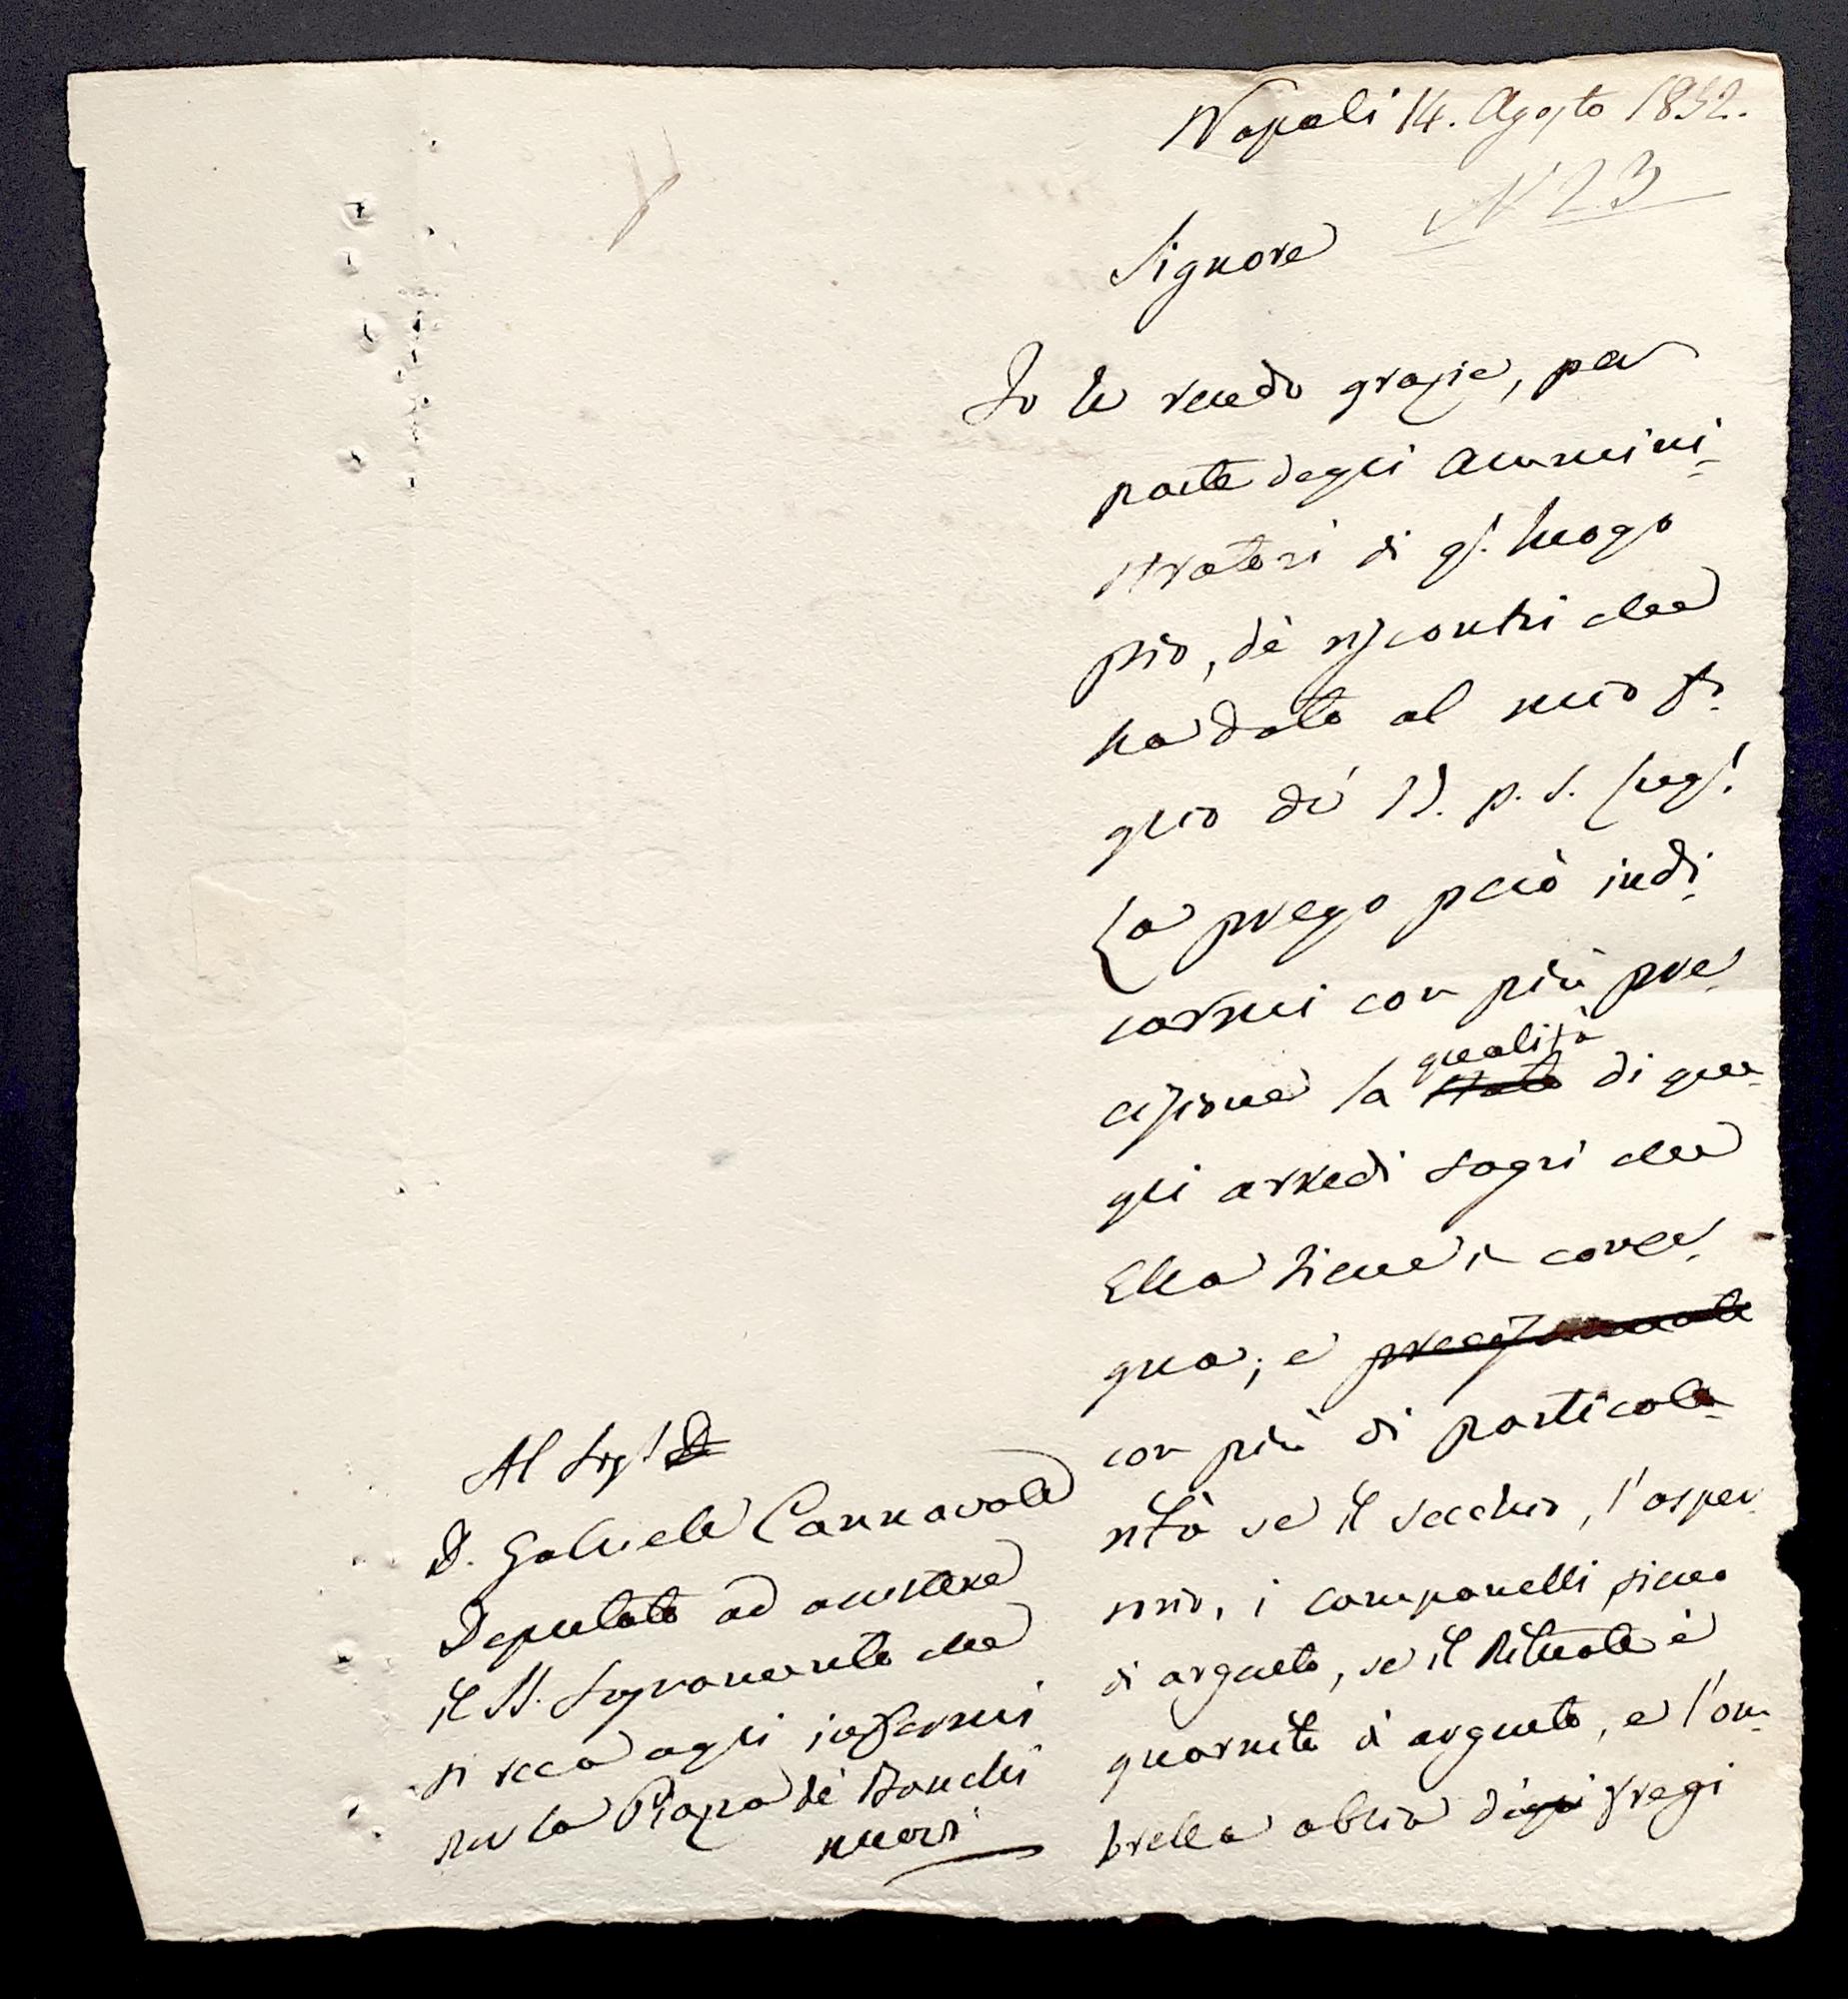 Napoli 14. Agosto 1832.
N 23
Signore
Io le rendo grazie, per
parte degli Ammini-
stratori di q.o luogo
pio, de' riscontri che
ha dato al mio fo-
glio de' 11. p. s. lug.o
La prego però indi-
carmi con più pre-
cisione la stato qualità di que-
gli arredi sagri che
Ella tiene in conse-
gna; e precisamente
con più di particola-
rità se il secchio, l'asper-
sorio, i campanelli sieno
di argento, se il Rituale è
guarnito di argento, e l'om-
brella abbia degli fregi
Al Sig.r D
D. Gabriele Cannavale
Deputato ad assistere
il SS. Sagramento che
si reca agli infermi
per la Piazza de' Banchi
nuovi